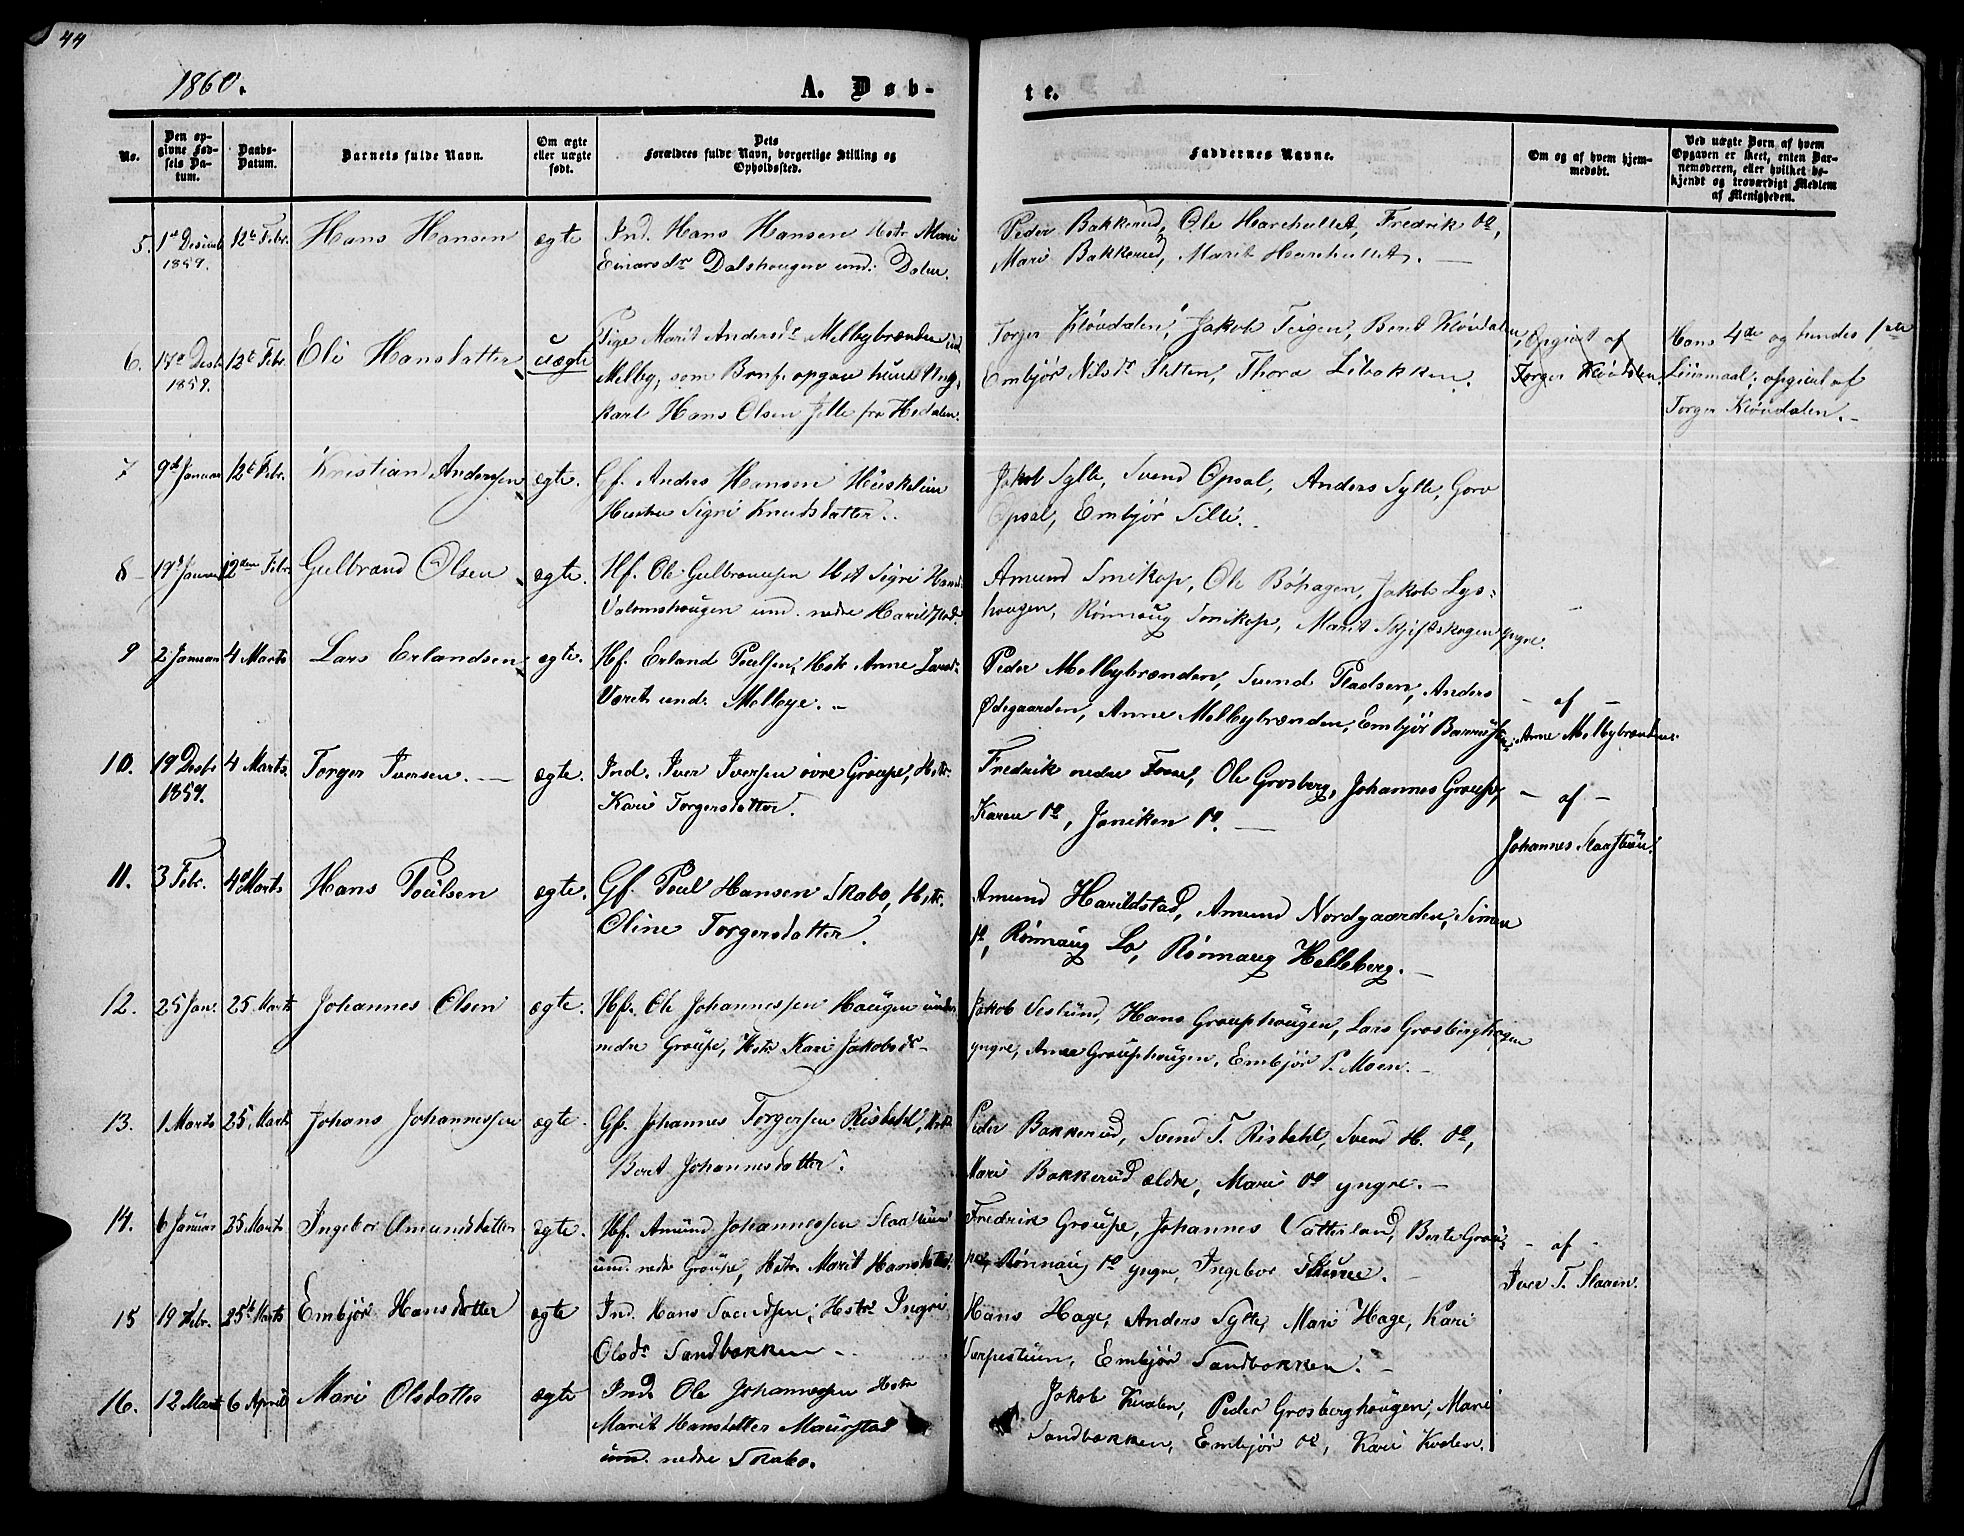 44
1860.
A. Døb-
te.
No.
Den op-
givne Fød-
sels Da-
tum.
Daabs-
Datum.
Barnets fulde Navn.
Om ægte
eller uægte
født.
Dets
Forældres fulde Navn, borgerlige Stilling og
Opholdssted.
Faddernes Navne.
Om og af hvem hjem-
medøbt.
Ved uægte Børn af hvem
Opgaven er skeet, enten Bar-
nemoderen, eller hvilket be-
kjendt og troværdigt Medlem
af Menigheden.
5. 1st Desemb 12te Febr. Hans Hansen ægte Ind. Hans Hansen Hstr Mari
1859. Einarsdr Dalshougen und. Dalen.
Peder Bakkerud, Ole Harehullet, Fredrik do,
Mari Bakkerud, Marit Harehullet. —
6. 17de Desb 12te Febr. Eli Hansdatter uægte Pige Marit Andersdr Melbybrænden und
1859. Melby, som Barnf. opgav hun Ung-
karl Hans Olsen Jille fra Hedalen.
Torger Kløvdalen, Jakob Teigen, Berit Kløvdalen,
Embjør Nilsdr Sletten, Thora Libakken.
Opgivet af
Torger Kløvdalen.
Hans 4de og hendes 1ste
Leiermaal; opgivet af
Torger Kløvdalen. —
7 9de Januar 12te Febr. Kristian Andersen ægte. Gf. Anders Hansen
Hustru Sigri Knudsdatter.
Jakob Sylte, Svend Opsal, Anders Sylte, Goro
Opsal, Embjør Sille.
8 19d Januar 12den Febr. Gulbrand Olsen ægte. Hf. Ole Gulbrandsen Hst Sigri Hansd
Valomshougen und. nedre Harildstad.
Amund Smikop, Ole Böhagen, Jakob Lys-
hougen, Rønnaug Smikop, Marit Skjeftskogen yngre.
9 2 Januar 4 Marts Lars Erlandsen ægte. Hf. Erland Poulsen, Hstr Anne Larsd.
Voret und. Melbye. —
Peder Melbybrænden, Svend Pladsen, Anders
Ødegaarden, Anne Melbybrænden, Embjør
— af —
Anne Melbybrænden.
10. 19 Desbr 4 Marts. Torger Iversen. — ægte. Ind. Iver Iversen øvre Groupe, Hstr.
1859. Kari Torgersdatter.
Fredrik nedre Fosse, Ole Grosberg, Johannes Groupe,
Karen do, Janiken do. —
— af —
Johannes Slaastuen.
11. 3 Febr. 4d Marts Hans Poulsen ægte. Gf. Poul Hansen Skabo, Hstr.
Oline Torgersdatter.
Amund Harildstad, Amund Nordgaarden, Simen
do, Rønnaug Lo, Rønnaug Helleberg. —
12. 25 Jan. 25 Marts Johannes Olsen ægte. Hf. Ole Johannessen Haugen under
nedre Groupe, Hstr Kari Jakobsdr —
Jakob Veslund, Hans Grouphougen, Lars Grosberghagen
yngre, Anne Grouphougen, Embjør P. Moen. —
13. 1 Marts 25 Marts Johans Johannessen ægte. Gf. Johannes Torgersen Ristehl, Hstr
Berit Johannesdatter.
Peder Bakkerud, Svend T. Ristehl, Svend H. do,
Mari Bakkerud ældre, Mari do yngre. —
14. 6 Januar 25 Marts Ingebor Amundsdatter ægte. Hf. Amund Johannessen Slaastuen
und. nedre Groupe, Hstr. Marit Hansdatter.
Fredrik Groupe, Johannes Vatterland, Berte Grou-
pe, Rønnaug do yngre, Ingebor Skuree. —
— af —
Iver T. Slaaen.
15 19 Febr. 25de Marts Embjør Hansdatter ægte Ind. Hans Svendsen, Hstr. Ingri
Olsdr Sandbakken —
Hans Hage, Anders Sylte, Mari Hage, Kari
Varpestuen, Embjør Sandbakken. —
16. 12 Marts 6 April Mari Olsdatter ægte Ind. Ole Johannessen Hstr
Marit Hansdatter Maurstad
und. nedre Skabo.
Jakob Kvalen, Peder Grosberghougen, Mari
Sandbakken, Embjør do, Kari Kvalen.